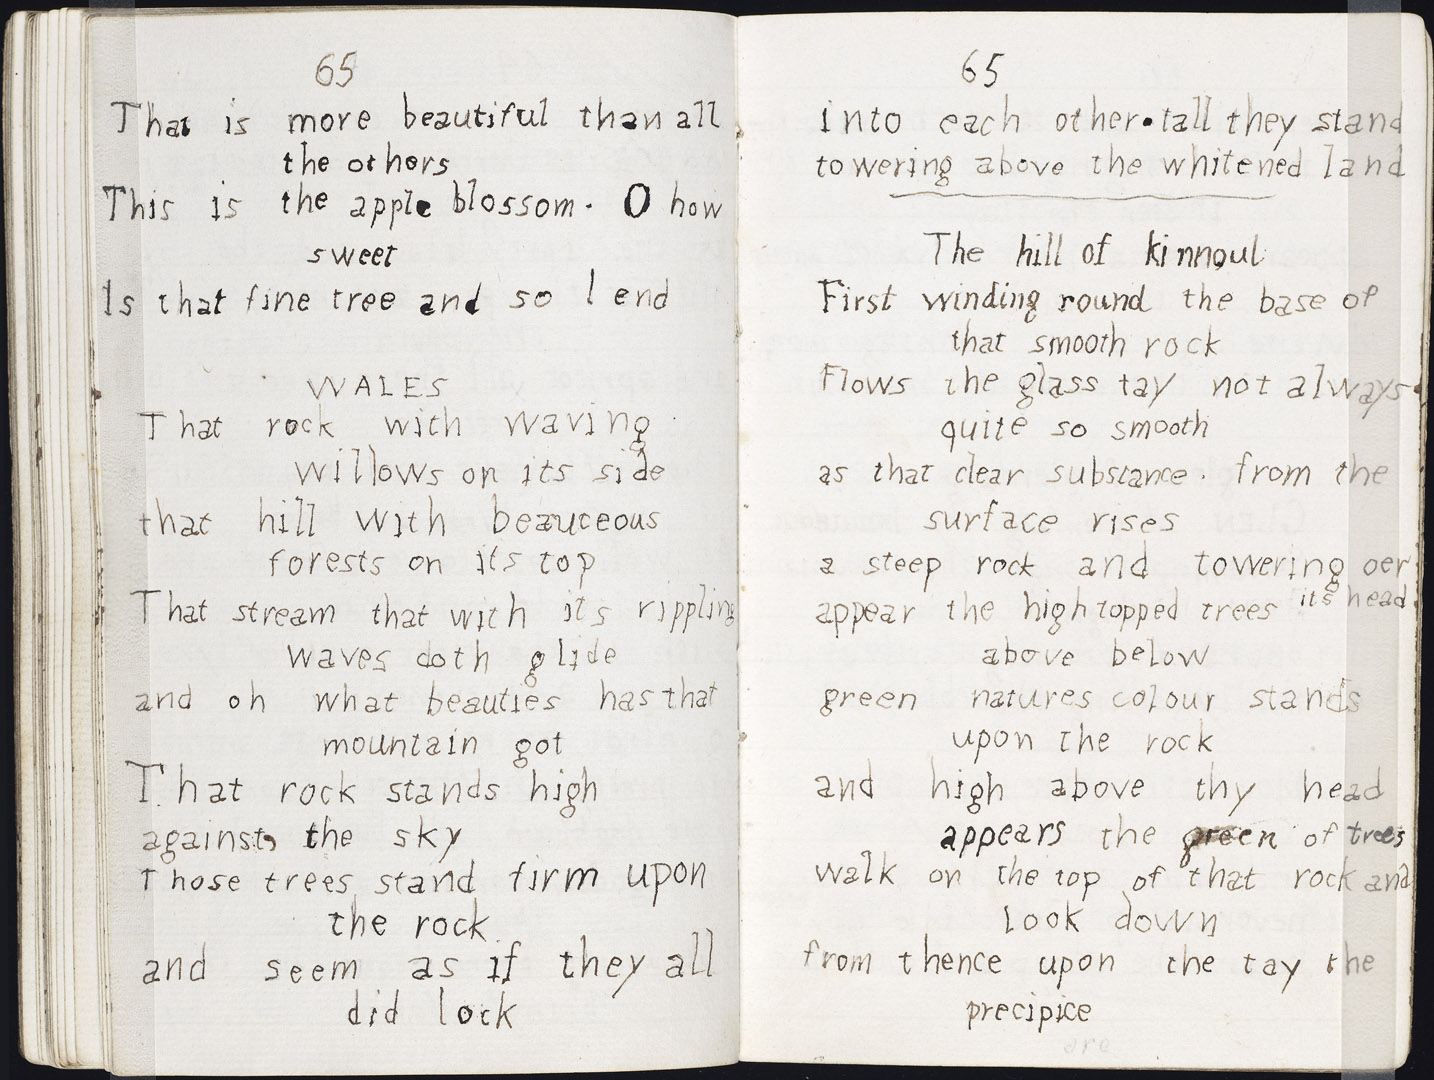 65
That is more beautiful than all
the others
This is the apple blossom. O how
sweet
Is that fine tree and so I end
WALES
That rock with waving
willows on its side
that hill with beauteous
forests on its top
That stream that with its rippling
waves doth glide
and oh what beauties has that
mountain got
That rock stands high
against, the sky
Those trees stand firm upon
the rock
and seem as if they all
did lock
65
into each other. tall they stand
towering above the whitened land
The hill of kinnoul
First winding round the base of
that smooth rock
Flows the glass tay not always
quite so smooth
as that clear substance. from the
surface rises
a steep rock and towering oer
its head
appear the high topped trees
above below
green natures colour stands
upon the rock
and high above thy head
appears the green of trees
walk on the top of that rock and
look down
from thence upon the tay the
precipice
are